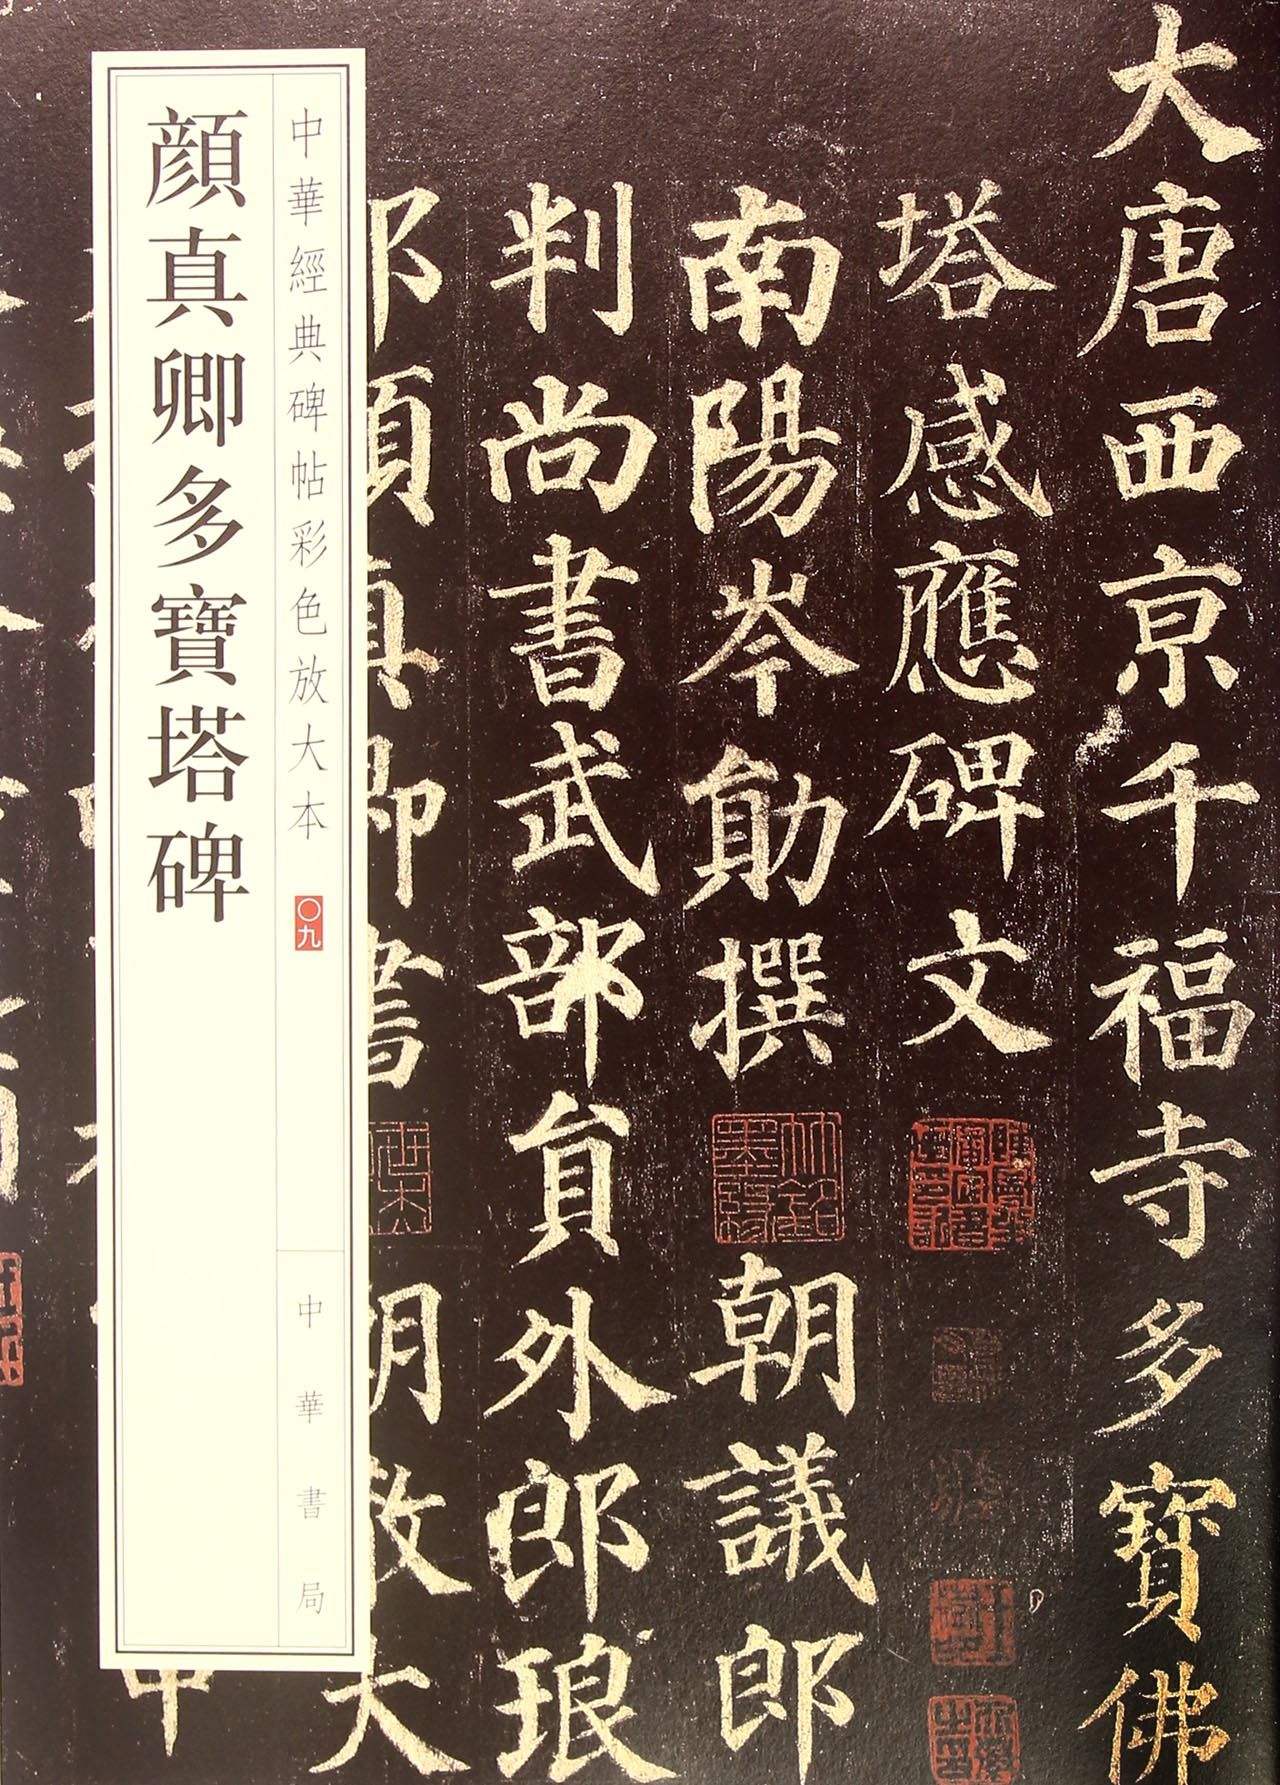 大唐西亰千福寺多寶佛
塔感應碑文
南陽岑勛撰 朝議郎
判尚書武部貟外郎琅
邪顏真卿書 朝散大
中華經典碑帖彩色放大本 〇九
中華書局
顔真卿多寶塔碑